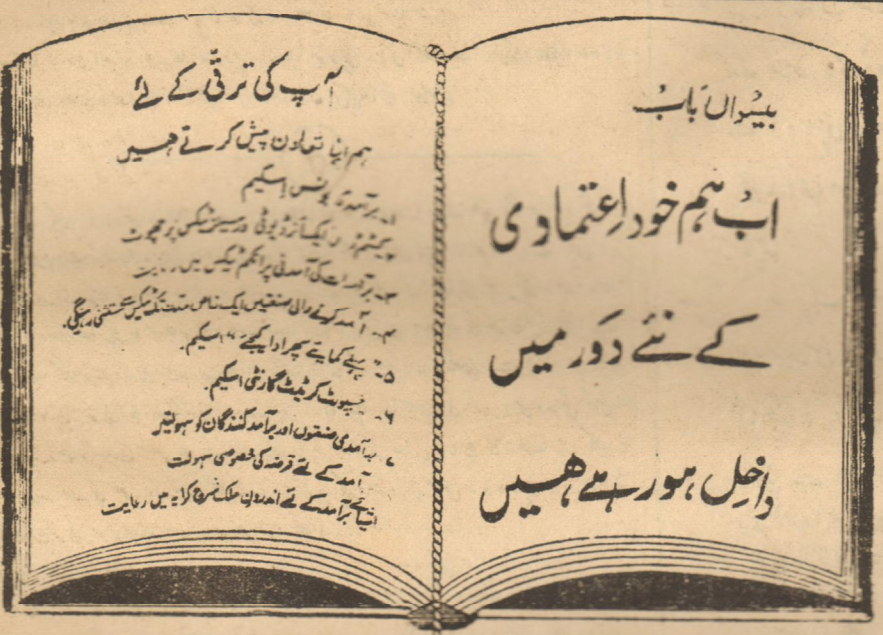 بیسواں باب
اب ہم خود اعتمادی
کے نئے دور میں
داخل ہو رہے ہیں
آپ کی ترقی کے لئے
ہم اپنا تعاون پیش کرتے ہیں
۱- برآمدی بونس اسکیم
کسٹمز، ایکسائز ڈیوٹی اور سیلز ٹیکس پر چھوٹ
۳- برآمدات کی آمدنی پر انکم ٹیکس میں رعایت
۴- آمد کرنے والی صنعتیں ایک خاص مدت تک ٹیکس سے مستثنیٰ رہیں گی۔
۵- "پہلے کمایئے پھر ادا کیجئے" اسکیم۔
۶- کریڈٹ گارنٹی اسکیم۔
۷ برآمدی صنعتوں اور برآمد کنندگان کو سہولتیں
آمد کے لئے قرضہ کی خصوصی سہولت
برآمد کے لئے اندرون ملک شرح کرایہ میں رعایت